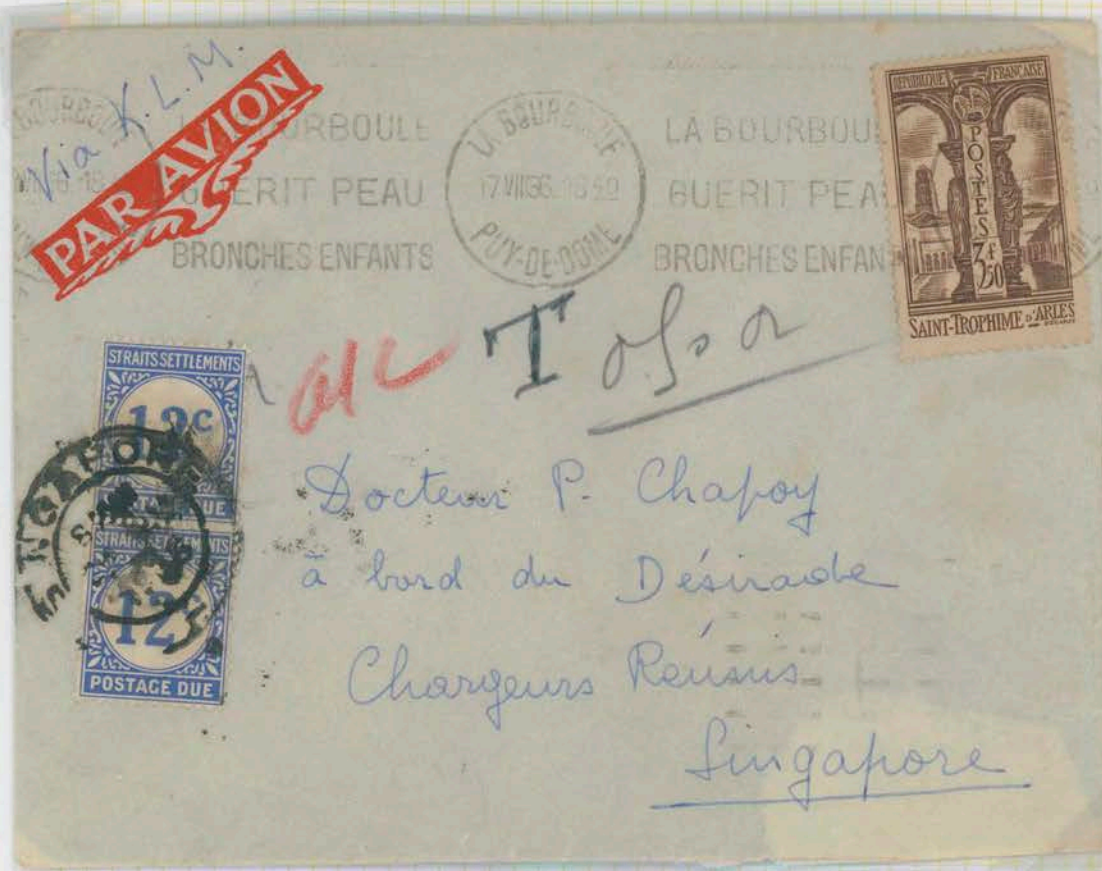 Via K.L.M.
PAR AVION
LA BOURBOULE
GUERIT PEAU
BRONCHES ENFANTS
LA BOURBOULE
17 VII 36. 18 50
PUY-DE-DOME
LA BOURBOU
GUERIT PEA
BRONCHES ENFANT
REPUBLIQUE FRANÇAISE
POSTES
3F 50
SAINT-TROPHIME D'ARLES
T
STRAITS SETTLEMENTS
12c
POSTAGE DUE
STRAITS SETTLEMENTS
12
POSTAGE DUE
SINGAPORE
Docteur P. Chapoy
à bord du Désirade
Chargeurs Réunis
Singapore